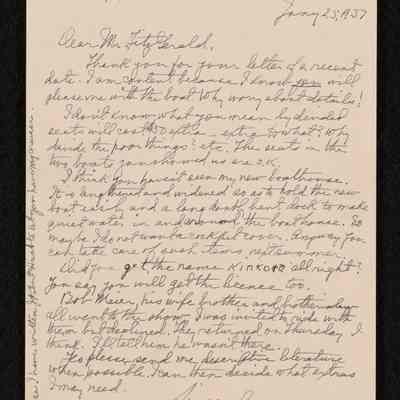 Jany 25, 1937
Dear Mr. FitzGerald,
Thank you for your letter of a recent
date. I am content because I know you will
please me with the boat. Why worry about details!
I don't know what you mean by divided
seats will cost $50 extra - extra to what? Why
divide the poor things? etc. The seats in the
two boats you showed us are O.K.
I think you haven't seen my new boathouse.
It is lengthened and widened so as to hold the new
boat easily, and a long south bent dock to make
quiet water, in and around the boathouse. So
maybe I do not want a cockpit cover. Anyway you
can take care of such items next summer.
And you got the name KINKORA all right?
You say you will get the license too.
Bob Meier, his wife brother and brother in law
all went to the show. I was invited to ride with
them but declined. They returned on Thursday I
think. I'll tell him he wasn't there.
Yes please send me descriptive literature
when possible. Can then decide what extras
I may need.